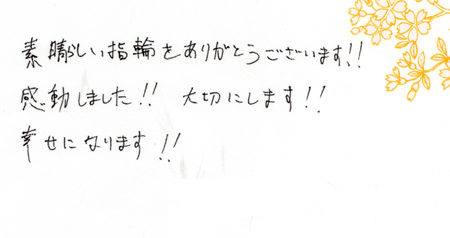 素晴らしい指輪をありがとうございます!!
感動しました!! 大切にします!!
幸せになります!!